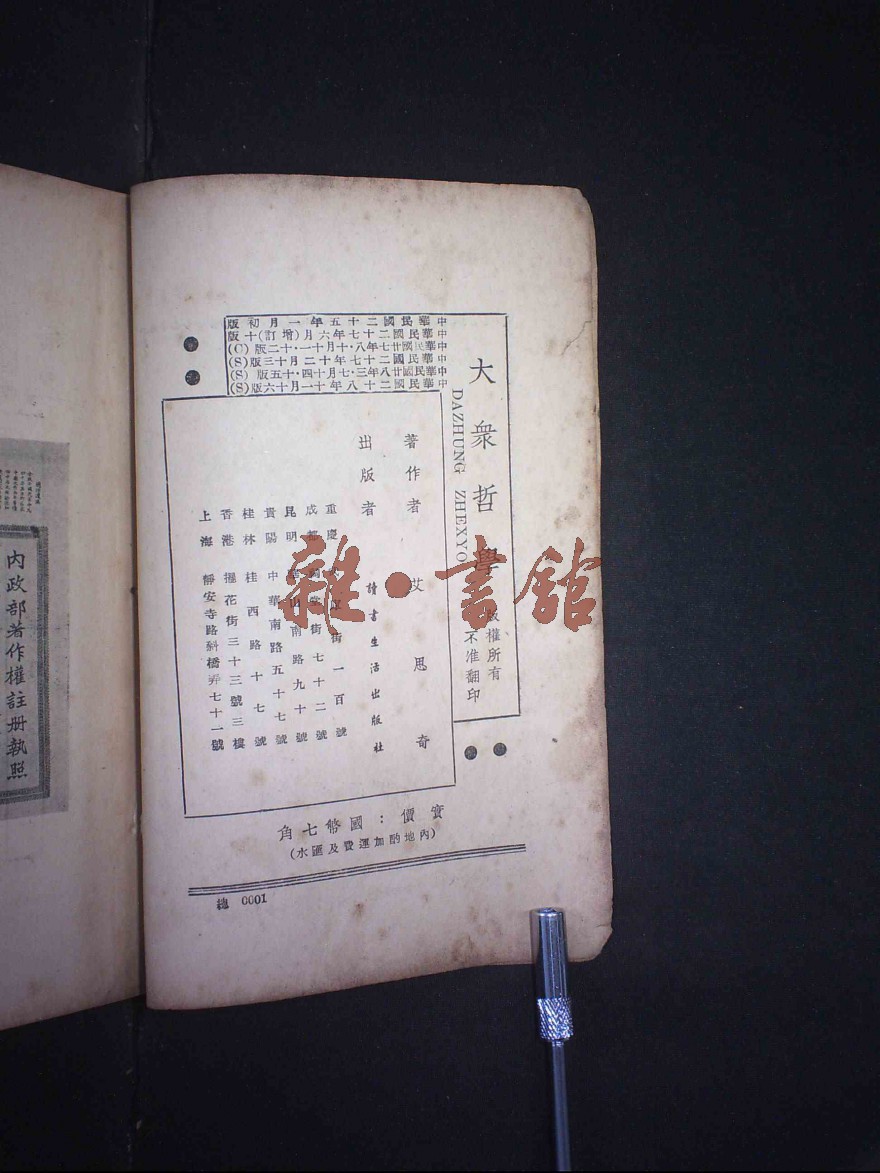 大衆哲學
DAZHUNG ZHEXYO
版權所有
不准翻印
中華民國二十五年一月初版
中華民國二十七年六月(增訂)十版
中華民國廿七年八·十月十一·十二版(C)
中華民國二十七年十二月十三版(S)
中華民國廿八年三·七月十四·十五版(S)
中華民國二十八年十一月十六版(S)
著作者 艾思奇
出版者 讀書生活出版社
重慶 街一百號
成都 街七十二號
昆明 華山南路九十號
貴陽 中華南路五十七號
桂林 桂西路十七號
香港 擺花街三十三號三樓
上海 靜安寺路斜橋弄七十一號
實價:國幣七角
(內地酌加運費及匯水)
總 0001
內政部著作權註册執照
雜·書館